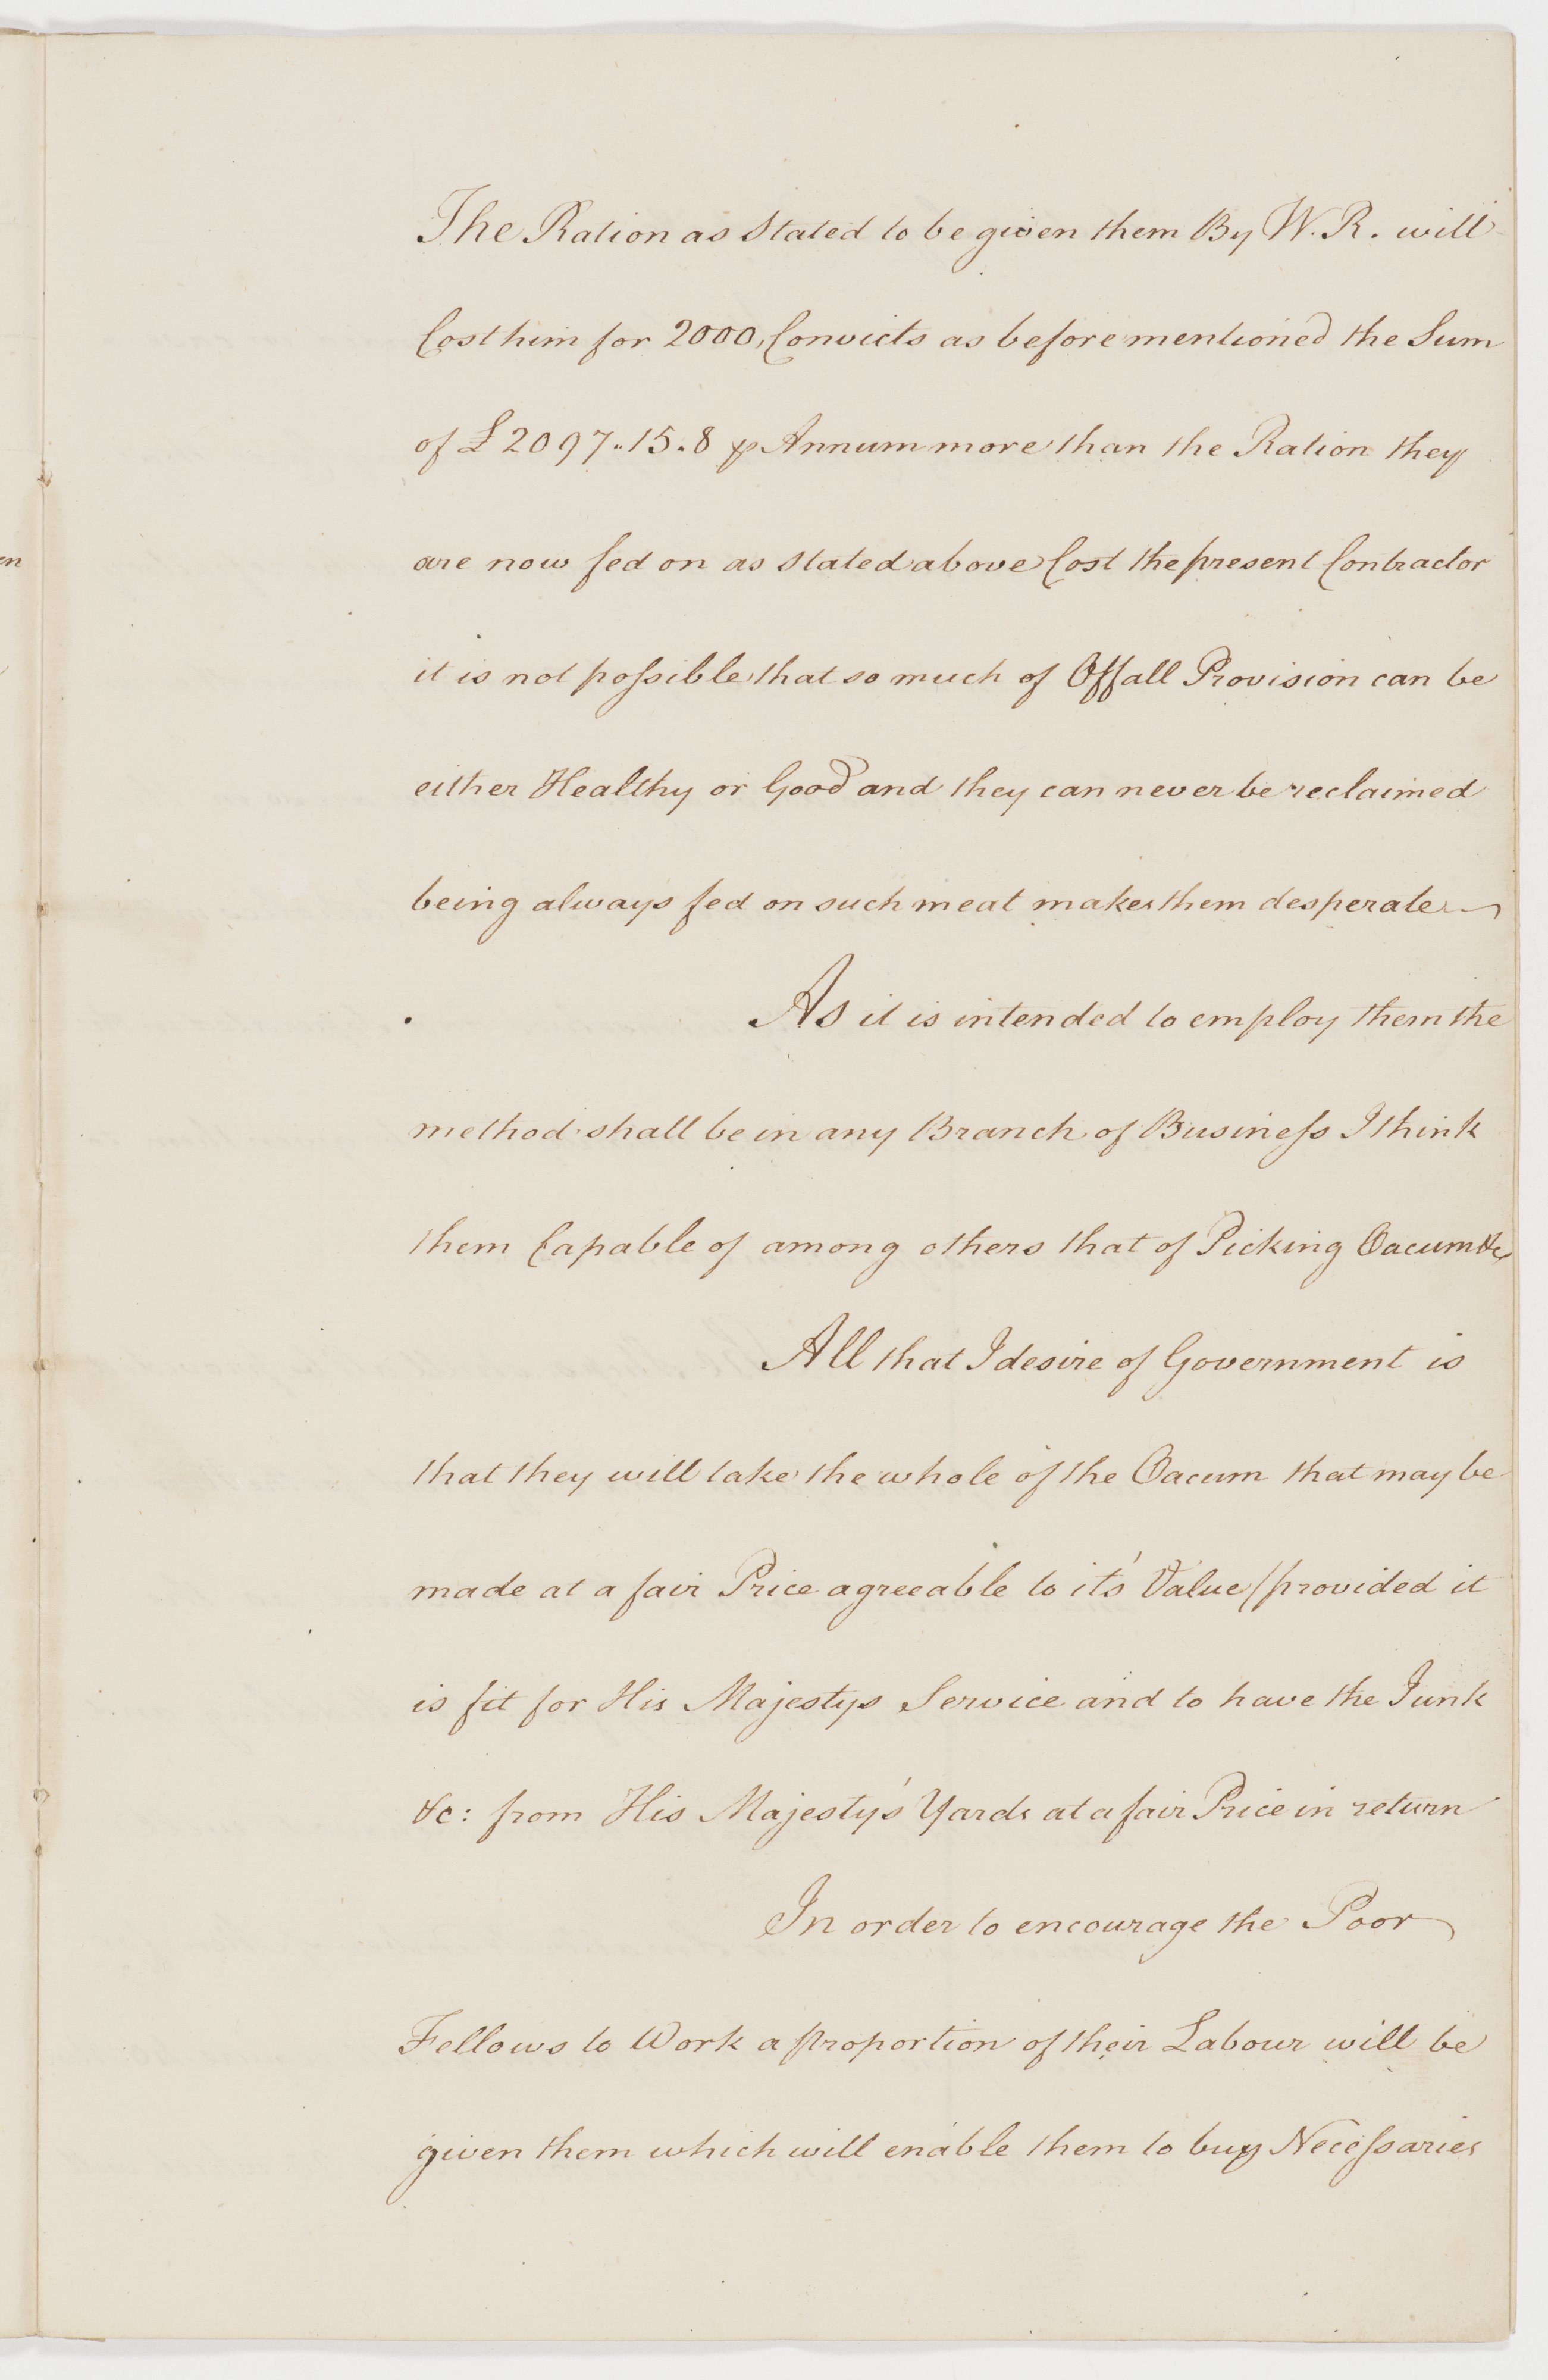 The Ration as Stated to be given them By W. R. will
Cost him for 2000, Convicts as before mentioned the Sum
of £ 2097..15.8 ⅌ Annum more than the Ration they
are now fed on as stated above Cost the present Contractor
it is not poſsible that so much of Offall Provision can be
either Healthy or Good and they can never be reclaimed
being always fed on such meat makes them desperate
As it is intended to employ them the
method shall be in any Branch of Busineſs I think
them Capable of among others that of Picking Oacum &c
All that I desire of Government is
that they will take the whole of the Oacum that may be
made at a fair Price agreeable to it's Value / provided it
is fit for His Majestys Service and to have the Junk
&c: from His Majesty's Yards at a fair Price in return
In order to encourage the Poor
Fellows to Work a proportion of their Labour will be
given them which will enable them to buy Neceſsaries
en